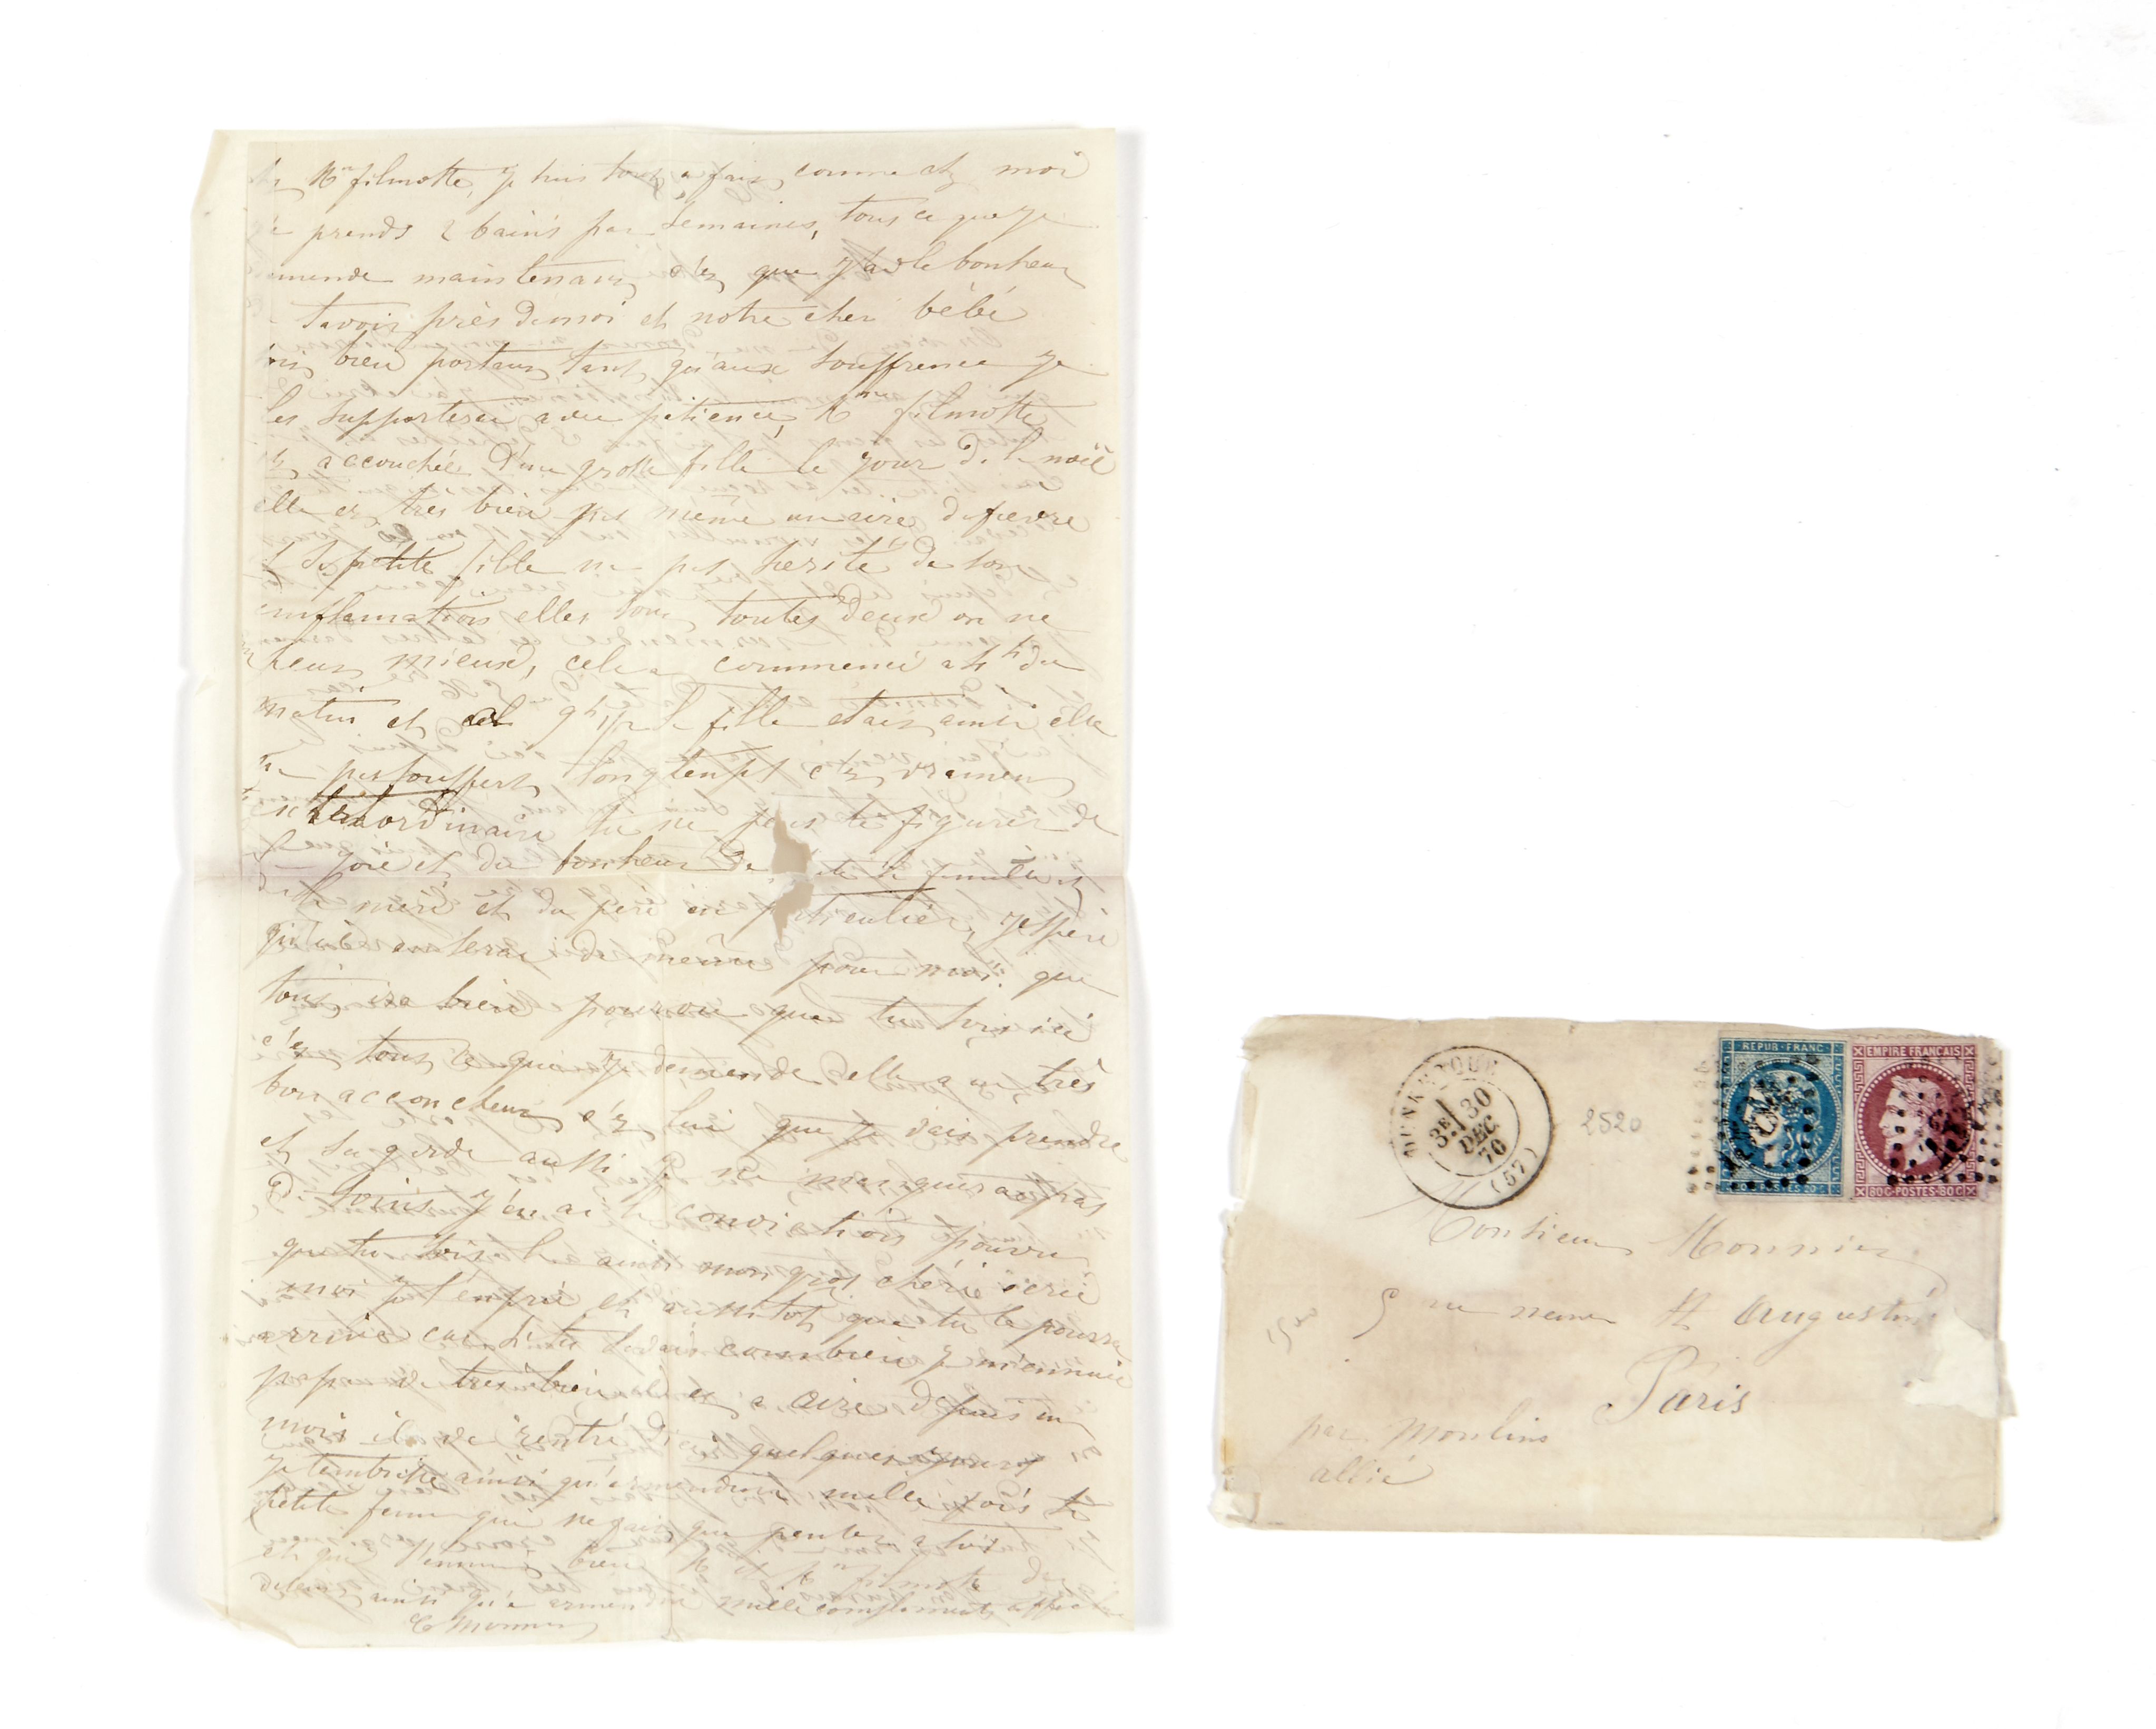 Mme filmotte, je suis tout a fais comme chez moi
je prends 2 bains par semaines, tous ce que je
demende maintenant c'es que j'ai le bonheur
tavoir près de moi et notre cher bébé
bien portant tant qu'aux souffrence je
les supporterai avec patience, Mme filmotte
est accouchée d'une grosse fille le jour de la noël
elle es très bien pas même un defievre
et sa petite fille na pas herité de son
imflamation elles sont toutes deux on ne
peut mieux, cela a commencé a 4h du
matin et 9h 1/2 la fille etait ainsi elle
na pas souffert longtemps c'es vraiment
extraordinaire tu ne peus te figurer de
la joie et du bonheur de la famille et
de la mère et du père en particulier, j'espère
qu'il en serai de même pour moi que
tous ira bien pourvu que tu sois ici
c'es tous ce que je demende elle a un très
bon accoucheur c'es lui que je vais prendre
et sa garde aussi je ne menquerai pas
de soins j'en ai la conviction pourvu
que tu sois la aussi mon gros chérie écrie
moi je t'en prie et aussitot que tu le pourra
arrive car si tu savais combien je m'ennuie
papa va tres bien depuis un
mois il va rentré d'ici quelques jours
je t'embrasse ainsi qu'armendine mille fois ta
petite femme qui ne fais que penser a toi
et qui t'emme bien M et Mme filmotte
ainsi qu'a armendine mille compliments
C Monnier
DUNKERQUE
3E 30
DEC
70
(57)
2520
REPUB·FRANC·
20 C·POSTES·20 C
EMPIRE FRANÇAIS
80C·POSTES·80C
Monsieur Monnier
5 rue neuve St Augustin
Paris
par Moulins
allié